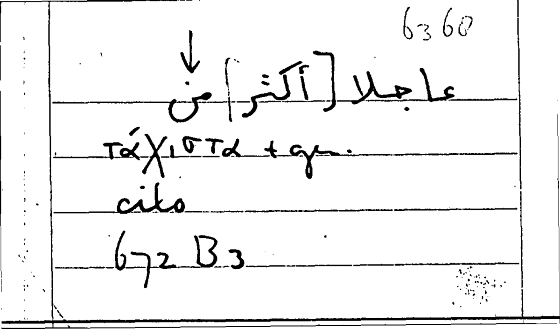 6360
↓
عاجلا [أكثر] من
τάχιστα + gen.
cito
672 B 3